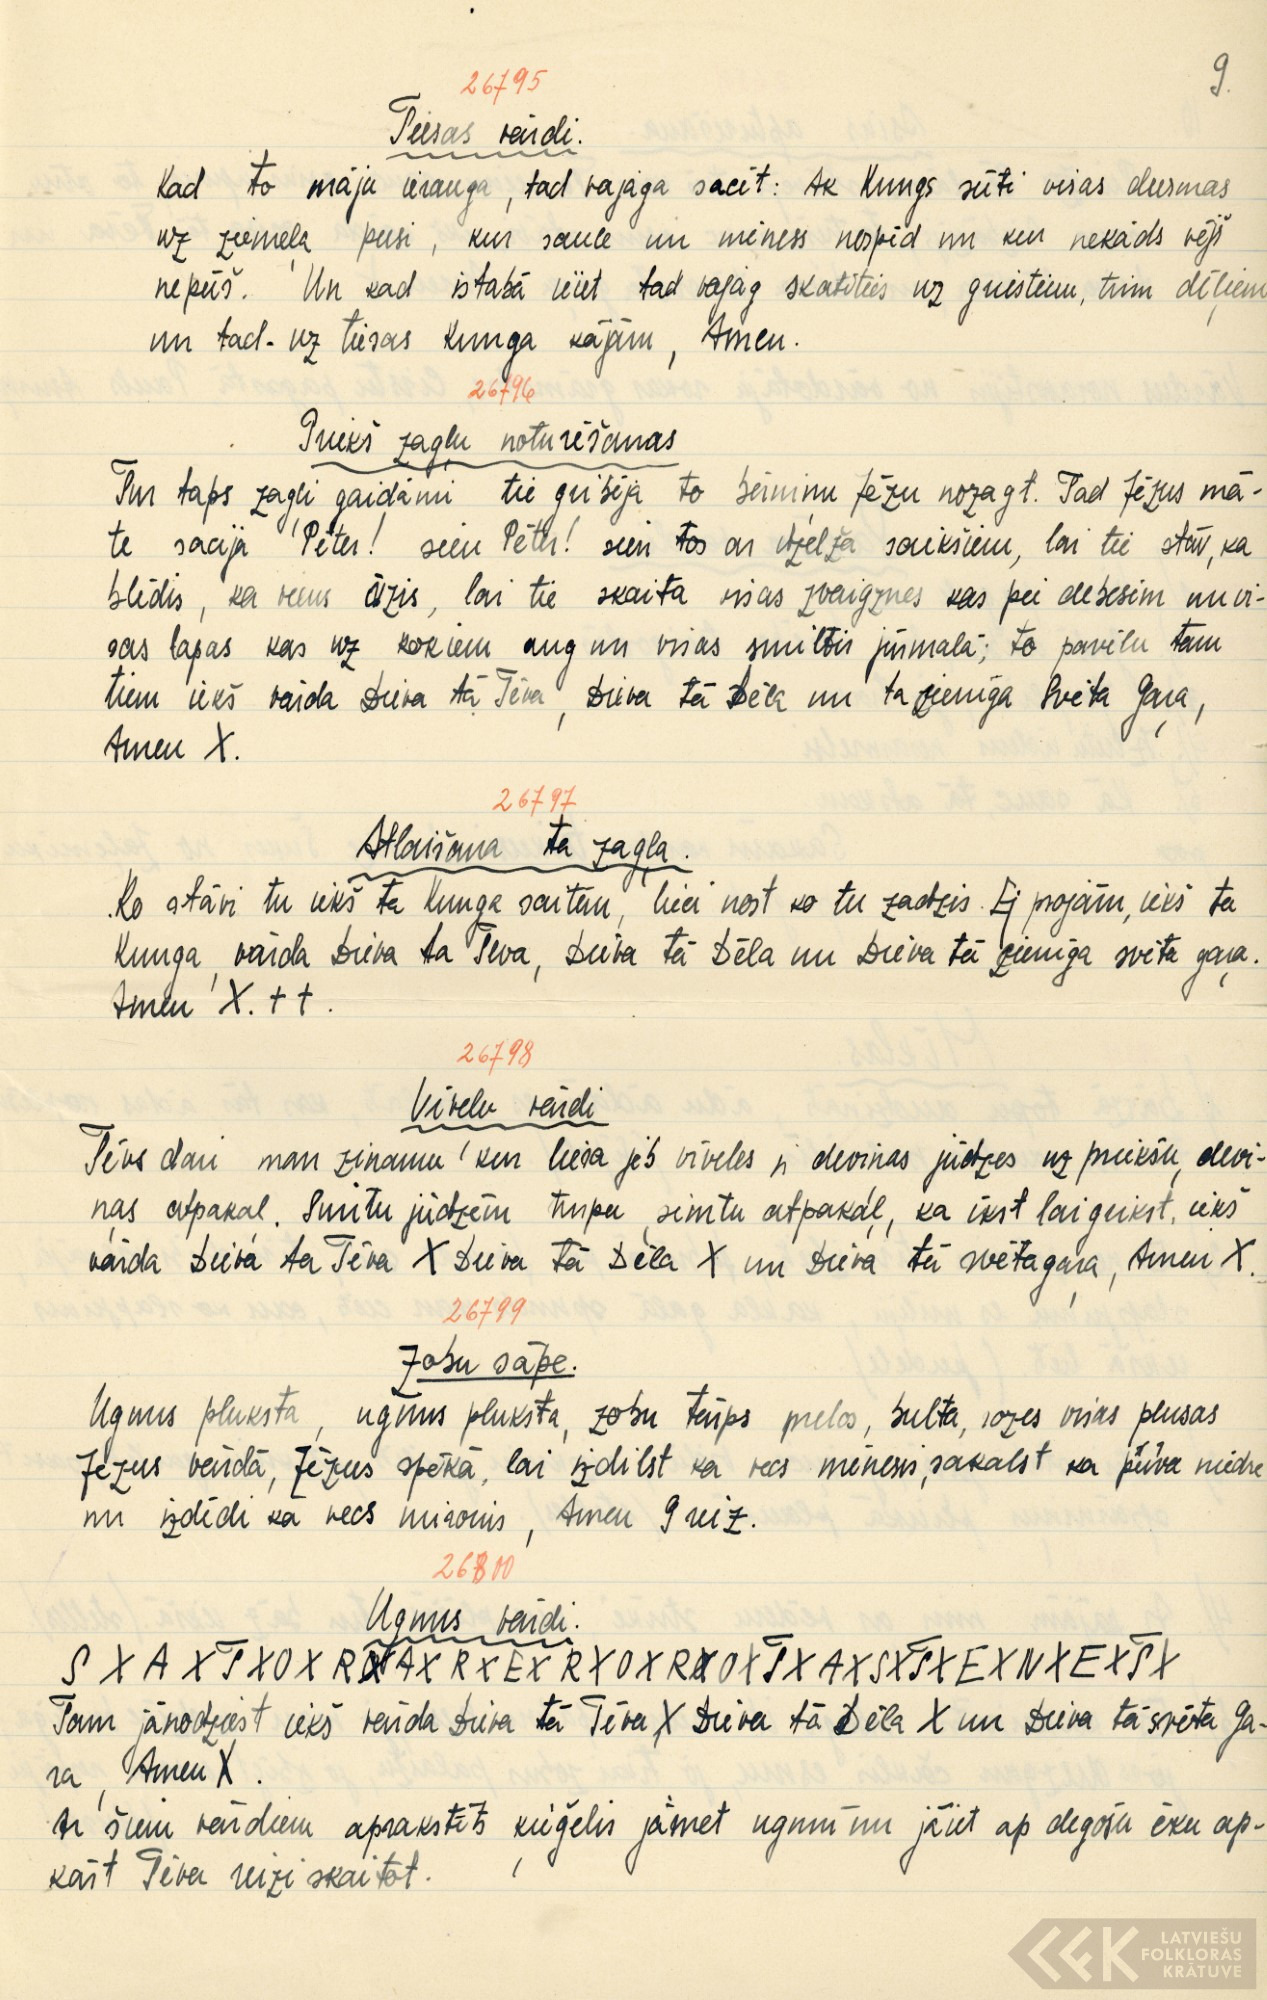 9.
26795
Tiesas vārdi.
Kad to māju ierauga, tad vajaga sacīt: Ak Kungs sūti visas dusmas
uz ziemeļa pusi, kur saule un mēness nespīd un kur nekāds vējš
nepūš. Un kad istabā ieiet tad vajag skatīties uz griestiem, trim dēļiem
un tad uz tiesas Kunga kājām, Amen.
26796
Priekš zagļu noturēšanas
Tur taps zagļi gaidāmi tie gribēja to bērniņu Jēzu nozagt. Tad Jēzus mā-
te sacīja Pēter! sien Pēter! sien tos ar dzelža saikšiem, lai tie stāv, ka
blēdis, ka viens āzis, lai tie skaita visas zvaigznes kas pei debesim un vi-
sas lapas kas uz kokiem aug un visas smiltis jūrmalā; to pavēlu tam
tiem iekš vārda Dieva tā Tēva, Dieva tā Dēla un ta zieniga Svēta Gaŗa,
Amen X.
26797
Atlaišana ta zagļa.
Ko stāvi tu iekš ta Kunga saitēm, liec nost ko tu zadzis. Ej projām, iekš ta
Kunga vārda Dieva ta Tēva, Dieva tā Dēla un Dieva tā zieniga svēta gaŗa.
Amen X. ++.
26798
Vīvelu vārdi
Tēvs dari man zinamu kur liesa jeb vīveles ņ deviņas jūdzes uz priekšu, devi-
ņas atpakaļ. Simtu jūdzēm turpu simtu atpakaļ, ka īkst lai geikst, iekš
vārda Dieva ta Tēva X Dieva tā Dēla X un Dieva tā svēta gaŗa, Amen X.
26799
Zobu sāpe.
Uguns pluksta, uguns pluksta, zobu tārps melos, bulta, rozes visas plusas
Jēzus vārdā, Jēzus spēkā, lai izdilst ka vecs mēnesis, sakalst ka pūva niedre
un izdēdi ka vecs mironis, Amen 9 reiz.
26800
Uguns vārdi.
S X A X T X O X R X A X R X E X R X O X R X O X T X A X S X T X E X N X E X T X
Tam jānodziest iekš vārda Dieva tā Tēva X Dieva tā Dēla X un Dieva tā svēta Ga-
ra, Amen X.
Ar šiem vārdiem aprakstīts ķieģelis jāmet ugunī un jāiet ap degošu ēku ap-
kārt Tēva reizi skaitot.
LATVIEŠU
FOLKLORAS
KRĀTUVE